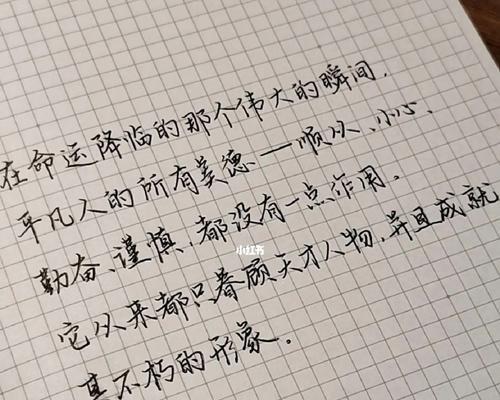 在命运降临的那个伟大的瞬间，
平凡人的所有美德——顺从、小心、
勤奋、谨慎，都没有一点作用。
它从来都只眷顾天才人物，并且成就
其不朽的形象。
小红书